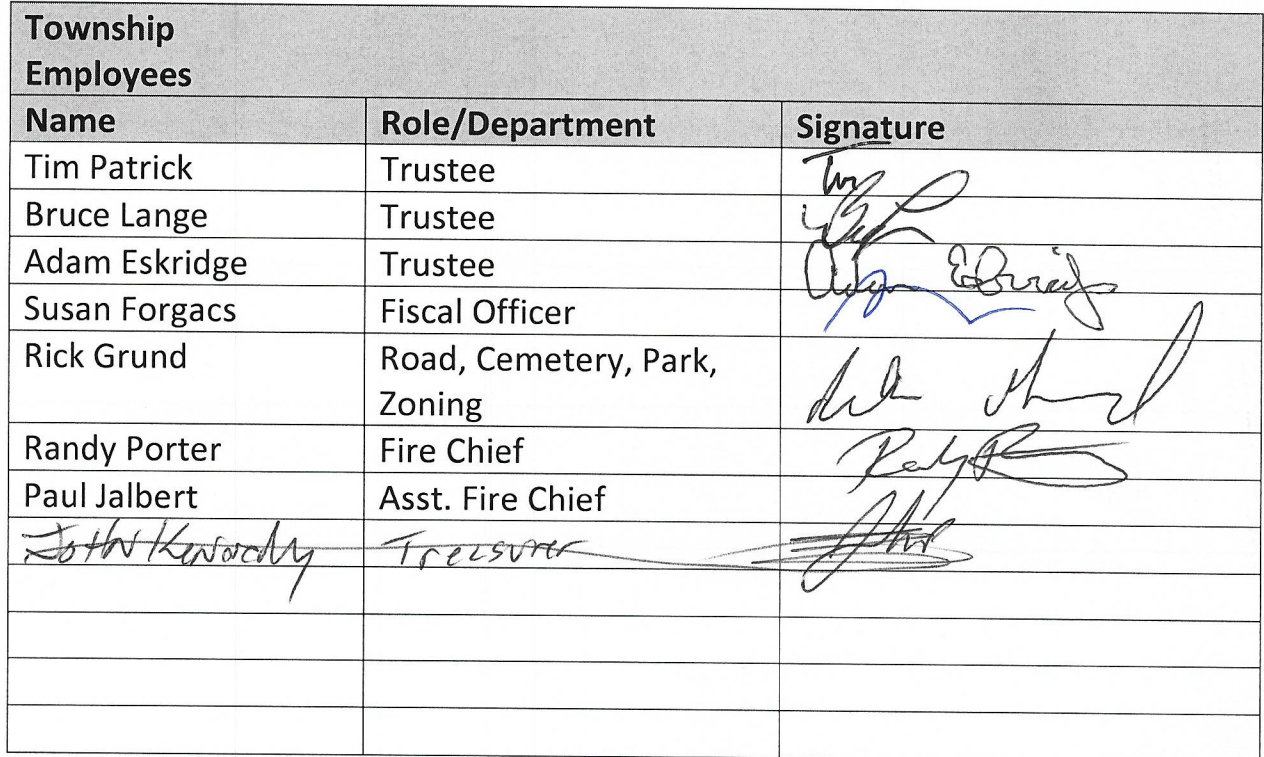 Township
Employees
Name Role/Department Signature
Tim Patrick Trustee Tim
Bruce Lange Trustee
Adam Eskridge Trustee Adam Eskridge
Susan Forgacs Fiscal Officer
Rick Grund Road, Cemetery, Park,
Zoning
Randy Porter Fire Chief Randy
Paul Jalbert Asst. Fire Chief
John Kennedy Treasurer